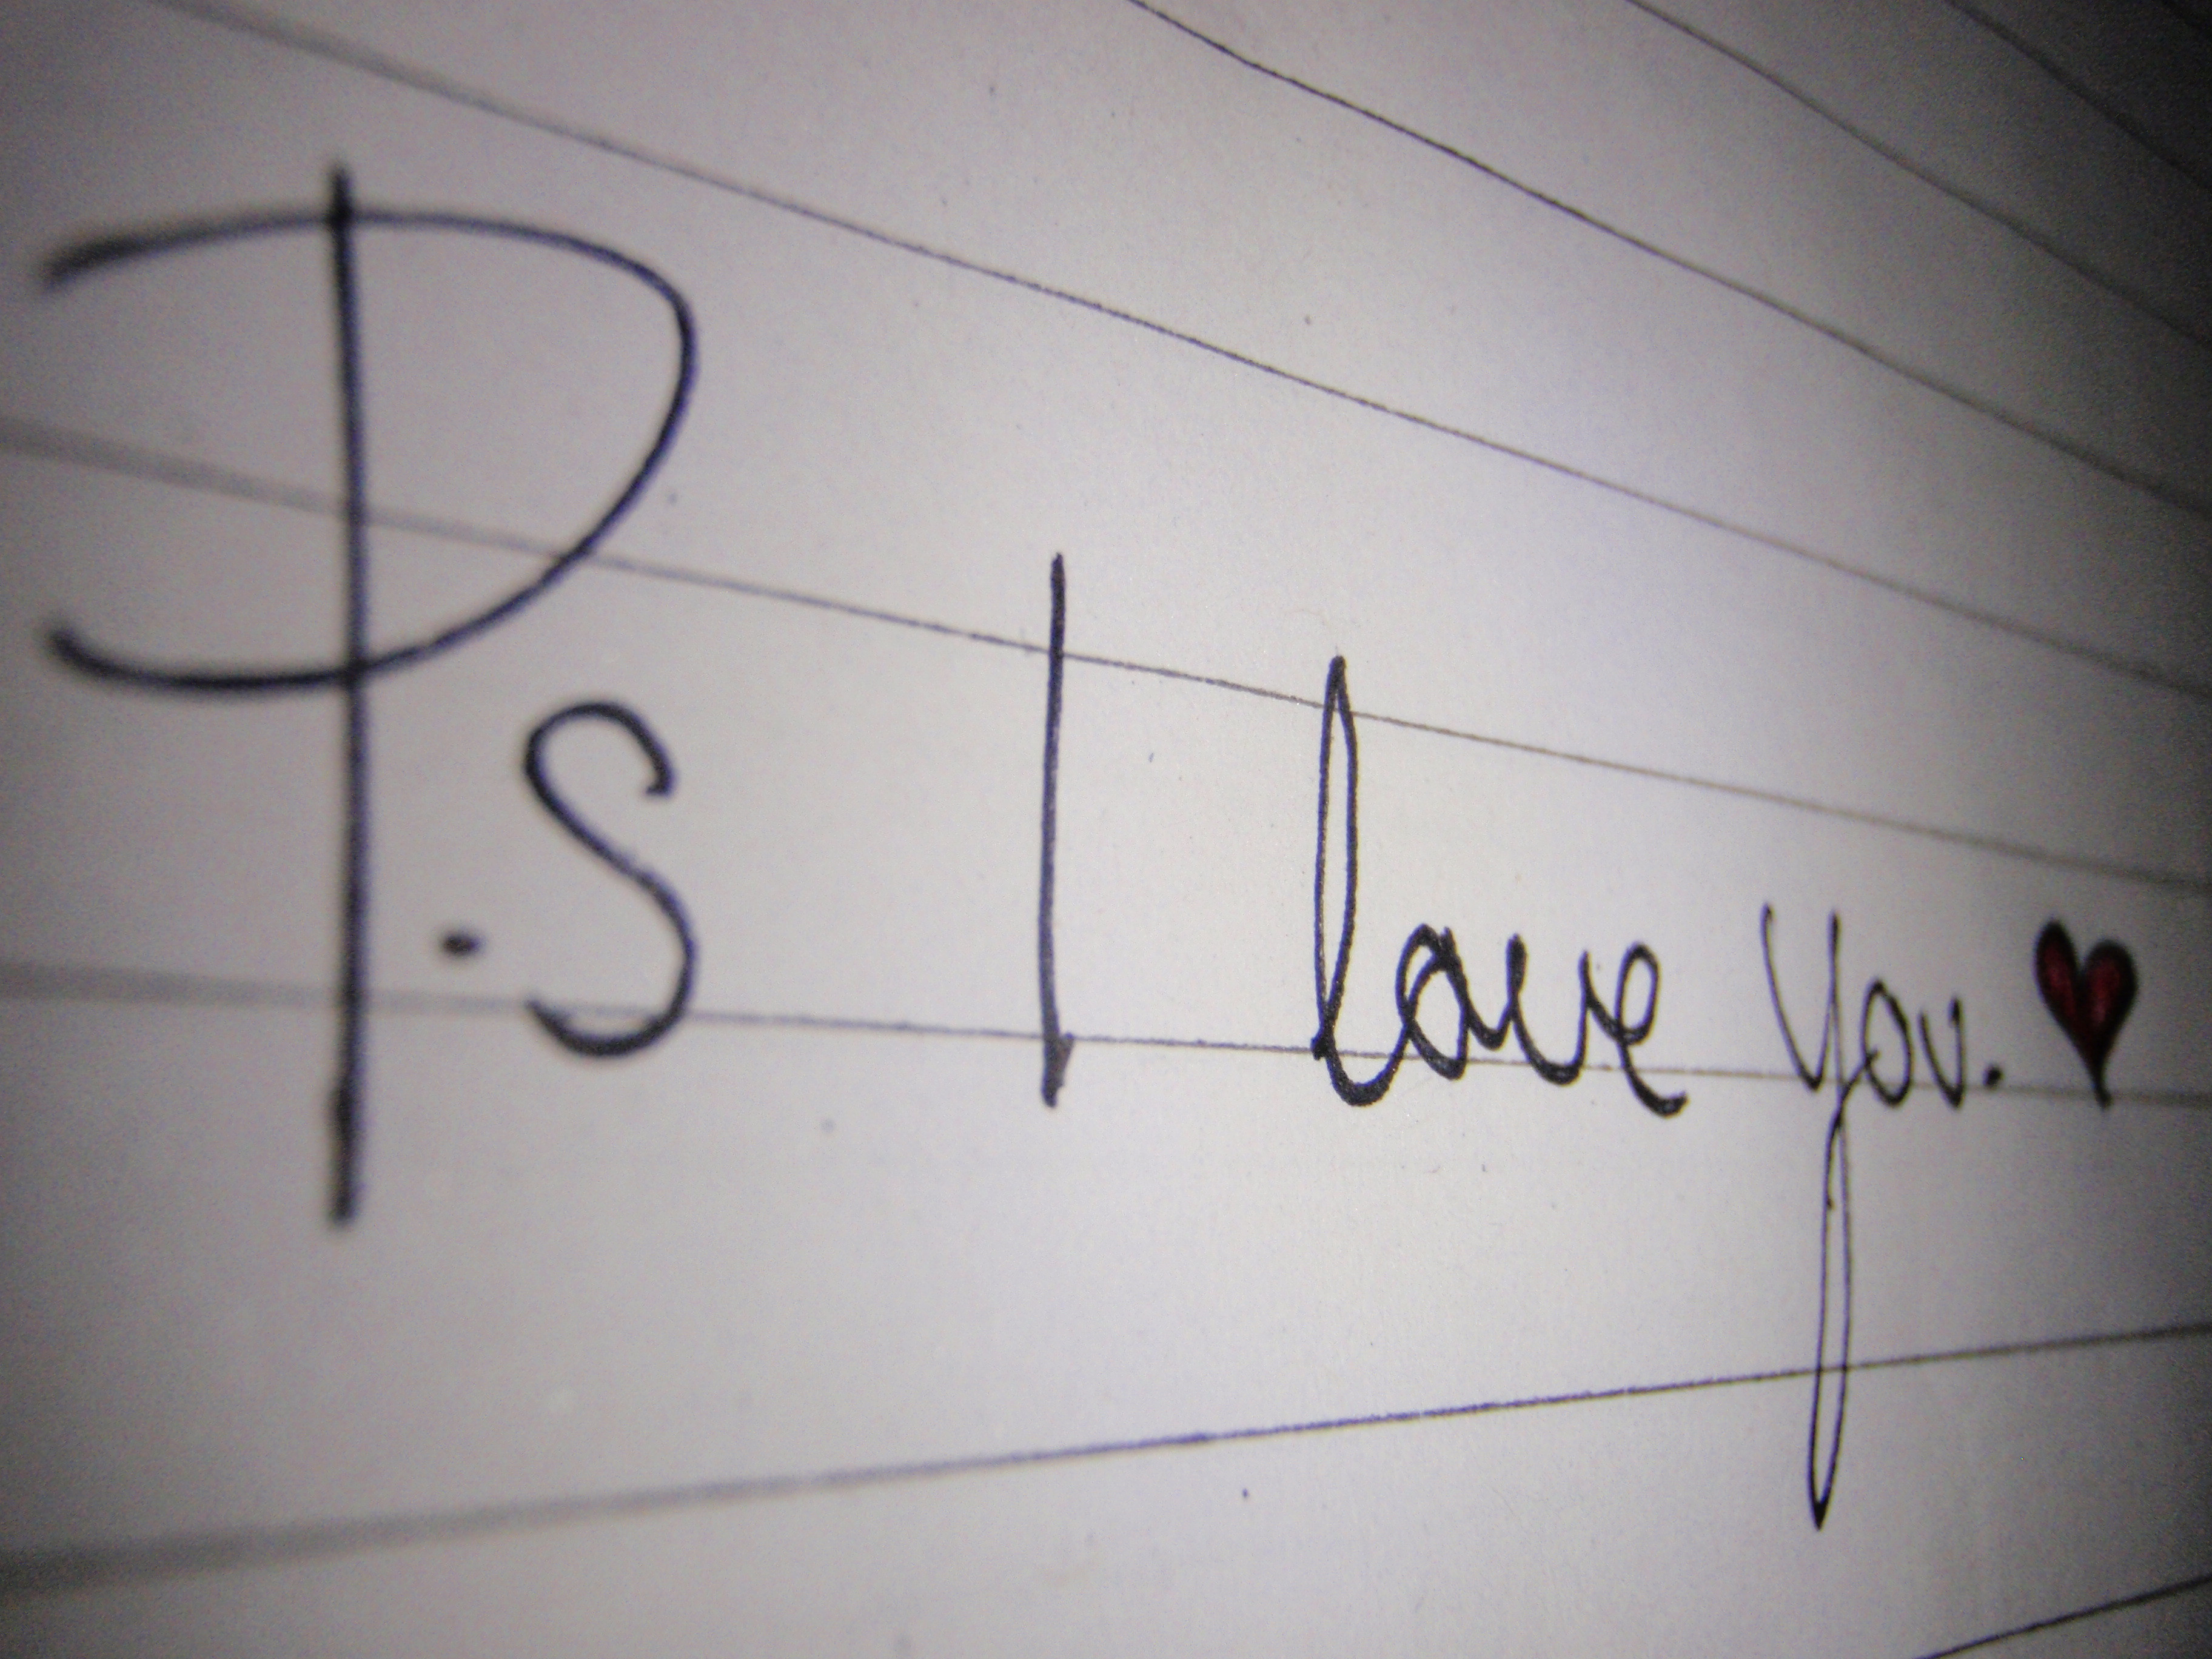 P.s I love you.♥